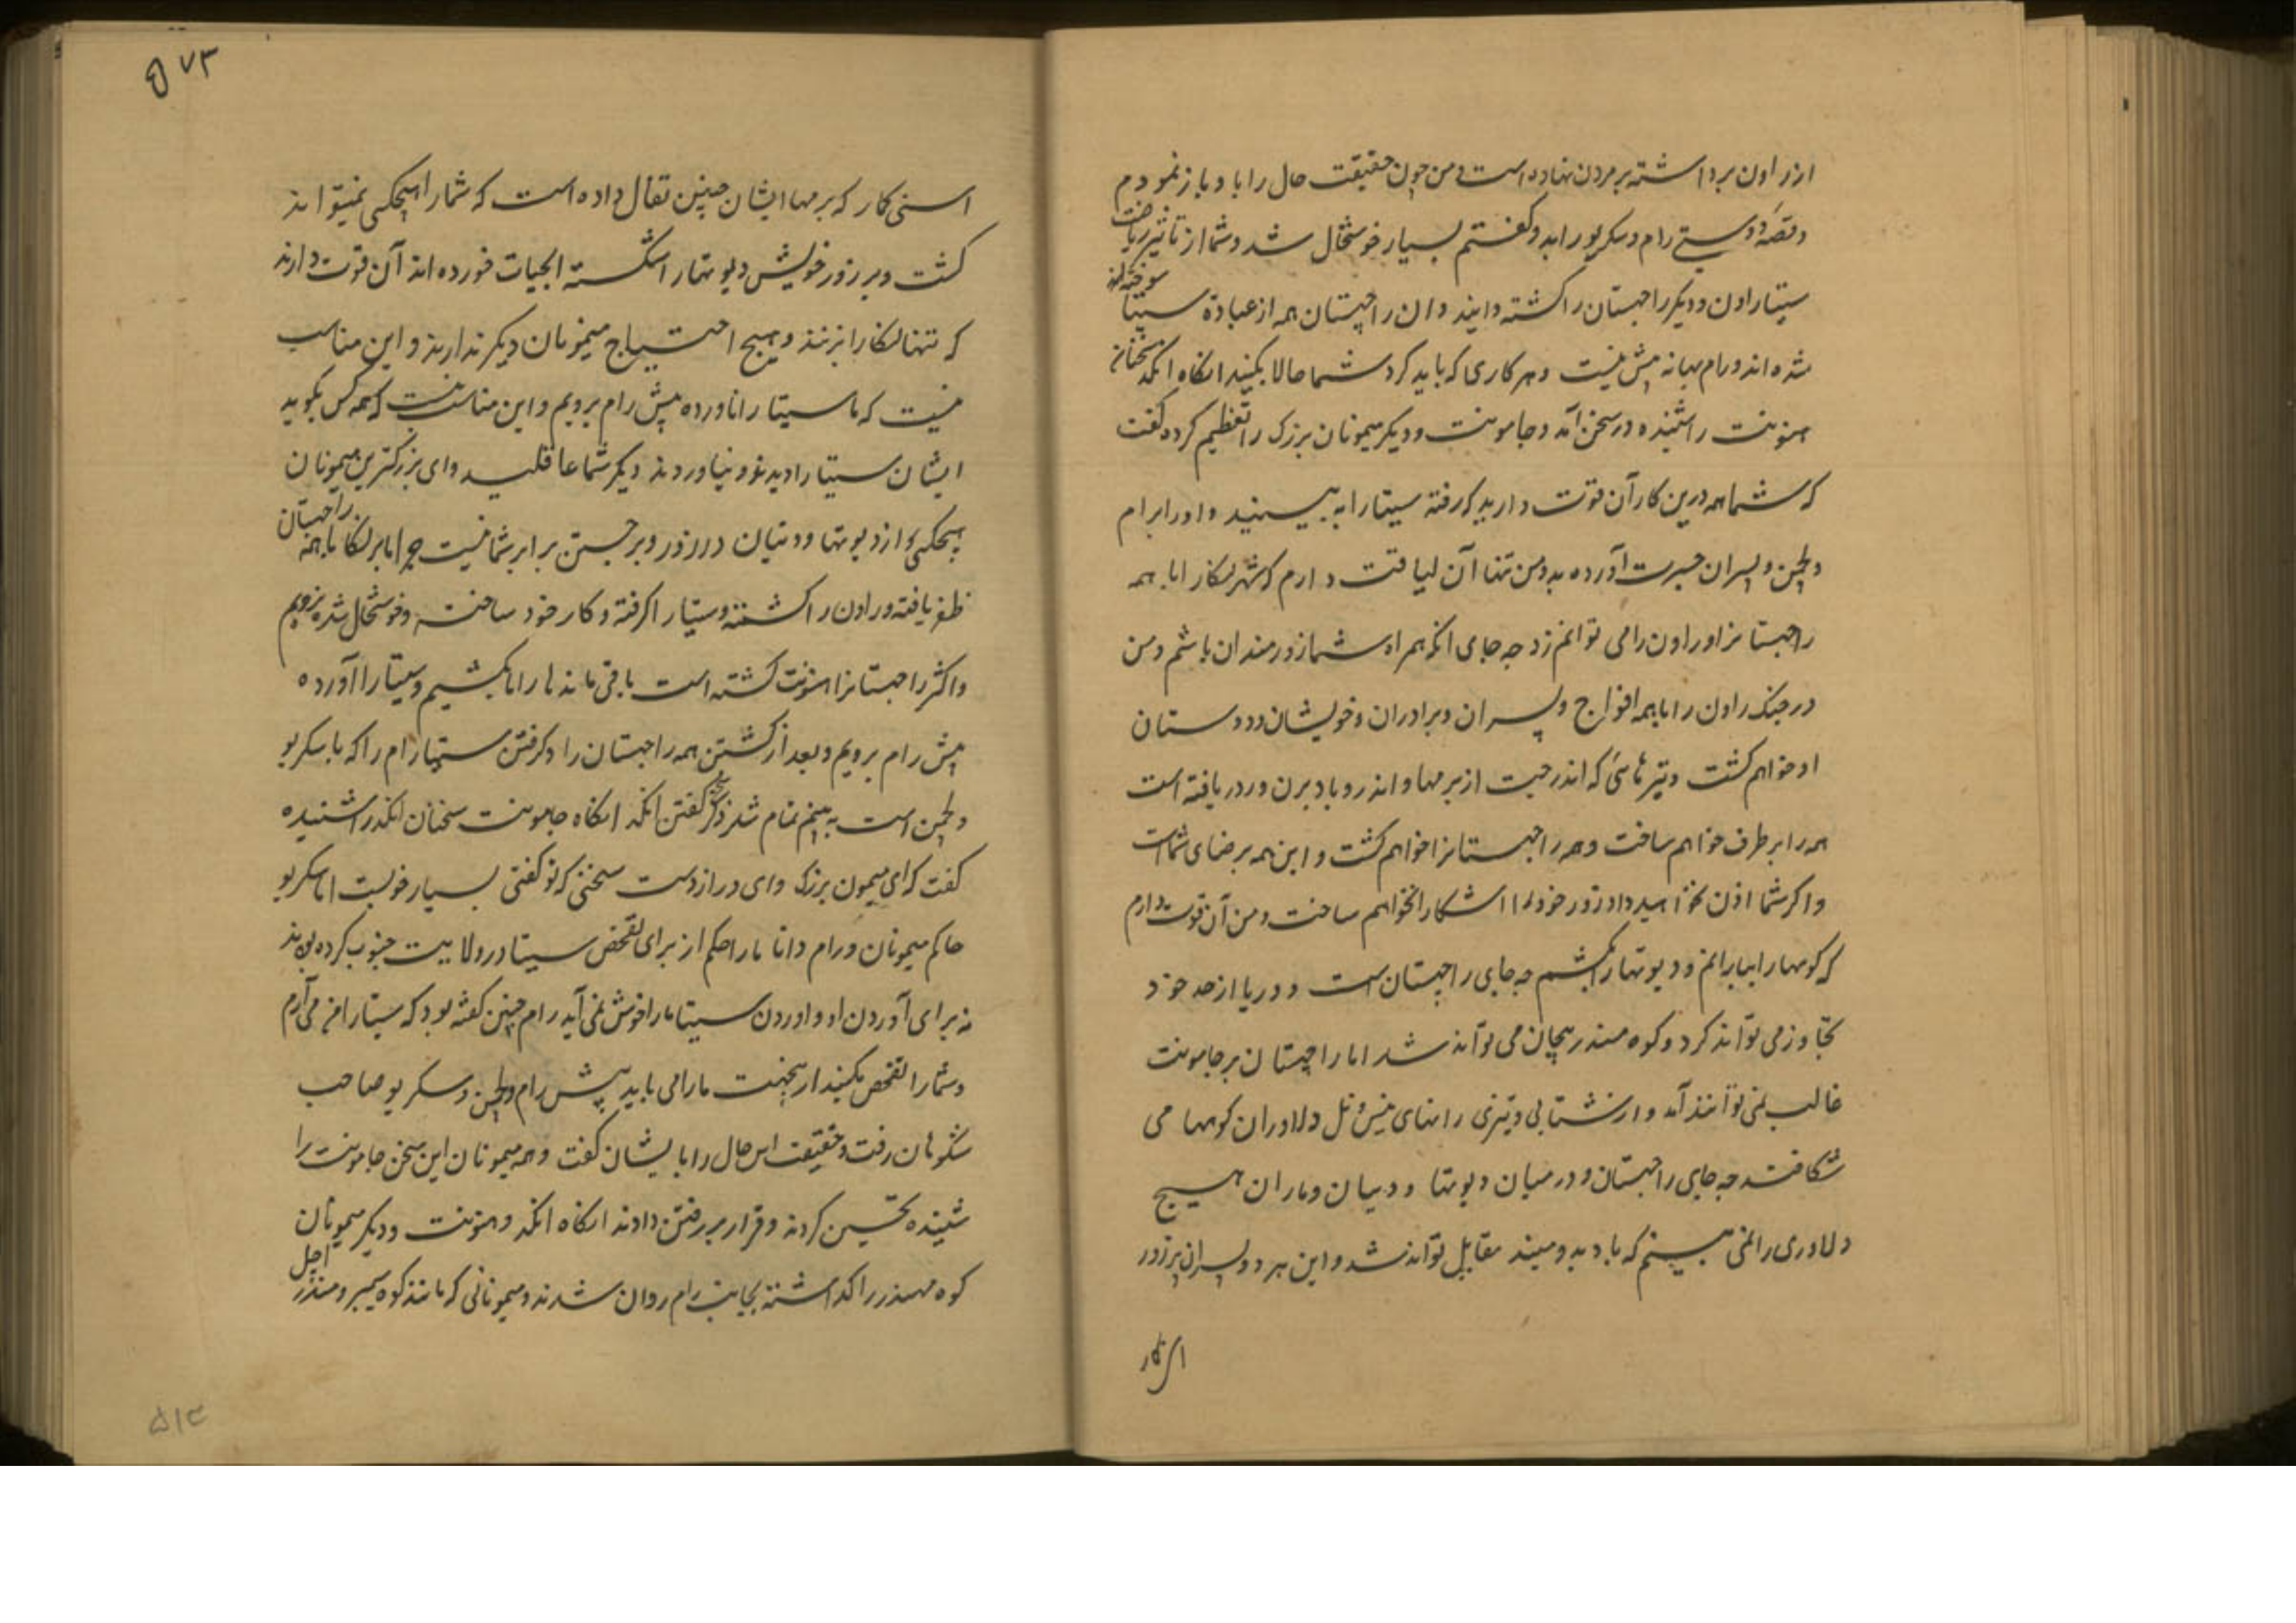 از راون برداشته بر مردن نهاده است و من چون حقیقت حال را با او باز نمودم
و قصهٔ دوستی رام و سکریو را بدو گفتم بسیار خوشحال شد و شما از تاثیر ریاضت
سیتا راون و دیگر راچهستان را کشته دانید و ان راچهستان همه از عبادة سیتا سوخته
شده اند و رام بهانه پیش نیست و هر کاری که باید کرد شما حالا بکنید انکاه انکد سخنان
هنونت را شنیده در سخن آمد و جامونت و دیگر میمونان بزرک را تعظیم کرده گفت
که شما همه درین کار آن قوت دارید که رفته سیتا را به بینید و او را برام
و لچمن و پسران حسرت آورده بدو من تنها آن لیاقت دارم که شهر لنکا را با همه
راچهستانرا و راون را می توانم زد چه جای انکه همراه شما زورمندان باشم و من
در جنک راون را با همه افواج و پسران و برادران و خویشان و دوستان
او خواهم کشت و تیرهائی که اندرجیت از برمها و اندر و باد و برن و رود ریافته است
همه را بر طرف خواهم ساخت و همه راچهستانرا خواهم کشت و این همه بر رضای شماست
و اکر شما اذن نخواهید داد زور خود را اشکارا نخواهم ساخت و من آن قوت دارم
که کوهها را ببارانم و دیوتها را بکشم چه جای راچهستان است و دریا از حد خود
تجاوز می تواند کرد و کوه مندر بیجان می تواند شد اما راچهستان بر جامونت
غالب نمی توانند آمد و از شتابی و تیزی رانهای پنس و نل دلاوران کوهها می
شکافند چه جای راچهستان و در میان دیوتها و دیتان و ماران هیچ
دلاوری را نمی بینم که با دبد و میند مقابل تواند شد و این هر دو پسران پر زور
اسنی کار
۵۷۳
اسنی کار که برمها ایشان چنین تفال داده است که شما را هیچکس نمیتواند
کشت و بر زور خویش دیوتها را شکسته ابحیات خورده اند آن قوت دارند
که تنها لنکا را بزنند و هیچ احتیاج میمونان دیکر ندارند و این مناسب
نیست که ما سیتا را ناورده پیش رام برویم و این مناسب نیست که همه کس بکوید
ایشان سیتا را دیدند و نیاوردند دیکر شما عاقلید و ای بزرکترین میمونان
هیچکس از دیوتها و دیتان در زور و برجستن برابر شما نیست چرا ما بر لنکا با همه راچهستان
ظفر یافته و راون را کشته و سیتا را گرفته و کار خود ساخته و خوشحال شده نرویم
و اکثر راچهستانرا هنونت کشته است باقی مانده را ما بکشیم و سیتا را آورده
پیش رام برویم و بعد از کشتن همه راچهستان را و کرفتن سیتا رام را که با سکریو
و لچمن است به بینم تمام شد ذکر سخن گفتن انکد انکاه جامونت سخنان انکد را شنیده
گفت که ای میمون بزرک و ای دراز دست سخنی که تو گفتی بسیار خوبست اما سکریو
حاکم میمونان و رام دانا ما را حکم از برای تفحص سیتا در ولایت جنوب کرده بودند
نه برای آوردن او و اوردن سیتا ما را خوش نمی آید رام چنین کفته بود که سیتا را من می آرم
و شما را تفحص بکنید ازینجهت ما را می باید پیش رام و لچمن و سکریو صاحب
شکوهان رفت و حقیقت این حال را با ایشان کفت و همه میمونان این سخن جامونت را
شنیده تحسین کردند و قرار بر رفتن دادند انکاه انکد و هنونت و دیکر میمونان
کوه مهندر را کذاشته بجانب رام روان شدند و میمونانی که مانند کوه سمیر و مندر
۵۱۳